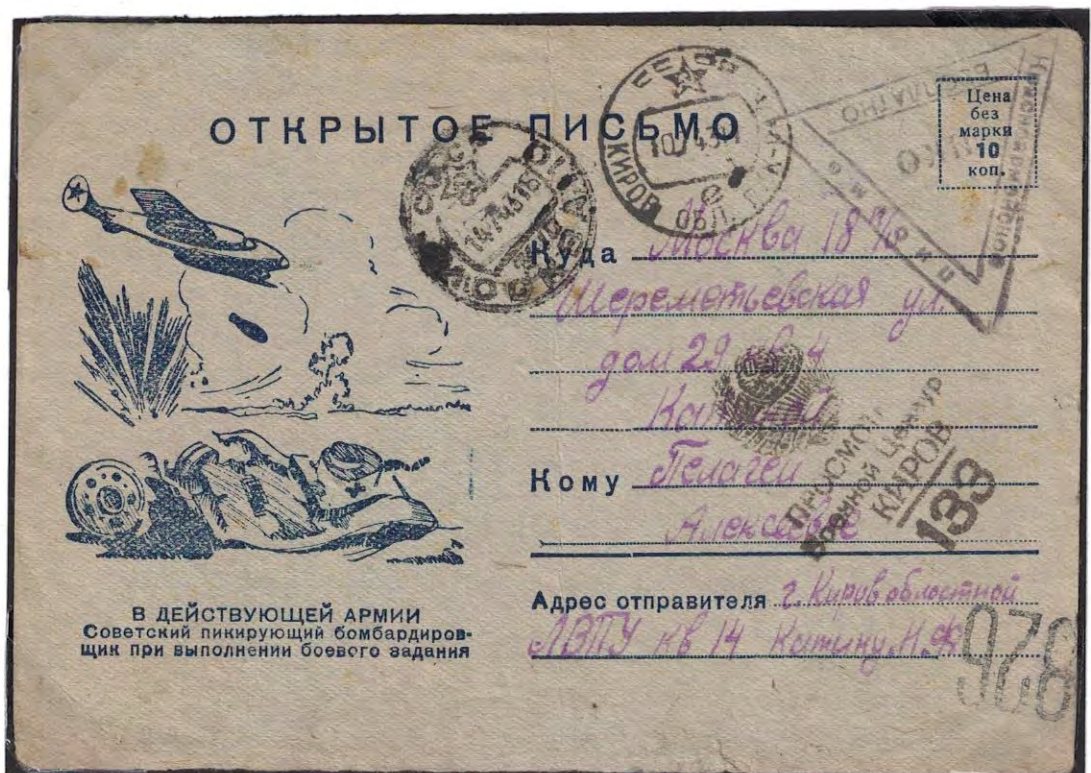 ОТКРЫТОЕ ПИСЬМО
Цена
без
марки
10
коп.
Красноармейское
письмо
БЕСПЛАТНО
КИРОВ ОБЛ.
10 7 43
МОСКВА
14 7 43
Куда Москва 18
Шереметьевская ул.
дом 29 кв 4
Кому Пелагеи
Алексеевне
ПРОСМОТРЕНО
Военной Цензурой
КИРОВ
133
Адрес отправителя г. Киров областной
кв 14 Катину Н. Ф
928
В ДЕЙСТВУЮЩЕЙ АРМИИ
Советский пикирующий бомбардиров-
щик при выполнении боевого задания